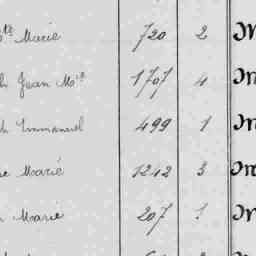 Marie 720 2 M
Jean M^ie 1707 4 M
Emmanuel 499 1 M
Marie 1242 3 M
Marie 207 1 M